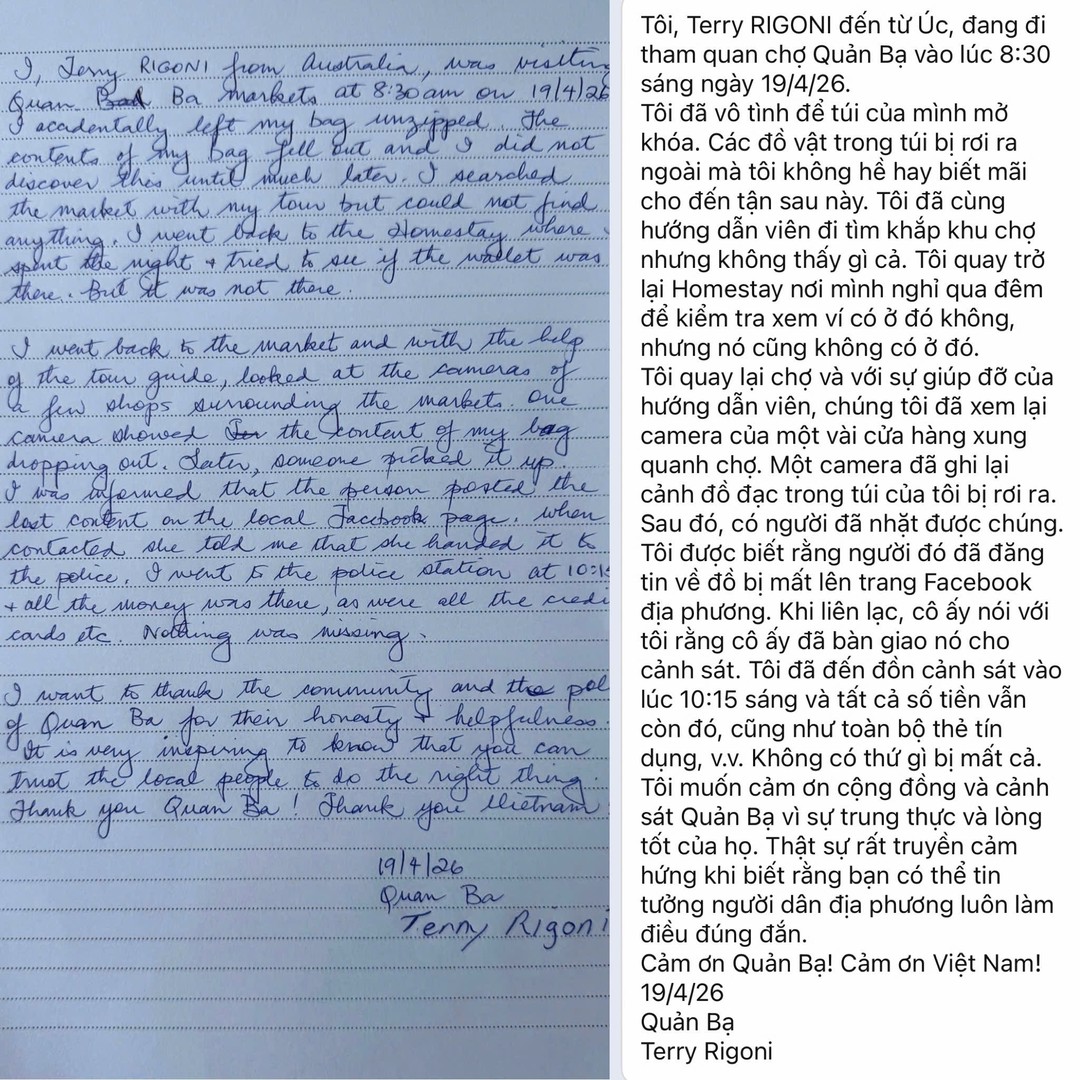 I, Terry RIGONI from Australia, was visiting
Quan Bad Ba markets at 8:30am on 19/4/26
I acadentally left my bag unzipped. The
contents of my bag fell out and I did not
discover this until much later. I searched
the market with my tour but could not find
anything. I went back to the Homestay where
spent the night + tried to see if the wallet was
there. But it was not there.
I went back to the market and with the help
of the tour guide, looked at the cameras of
a few shops surrounding the markets. One
camera showed the content of my bag
dropping out. Later, someone picked it up
I was informed that the person posted the
lost content on the local Facebook page. When
contacted she told me that she handed it to
the police. I went to the police station at 10:1
+ all the money was there, as were all the credi
cards etc. Nothing was missing.
I want to thank the community and the pol
of Quan Ba for their honesty + helpfulness.
It is very inspiring to know that you can
trust the local people to do the right thing.
Thank you Quan Ba! Thank you Vietnam
19/4/26
Quan Ba
Terry Rigoni
Tôi, Terry RIGONI đến từ Úc, đang đi
tham quan chợ Quản Bạ vào lúc 8:30
sáng ngày 19/4/26.
Tôi đã vô tình để túi của mình mở
khóa. Các đồ vật trong túi bị rơi ra
ngoài mà tôi không hề hay biết mãi
cho đến tận sau này. Tôi đã cùng
hướng dẫn viên đi tìm khắp khu chợ
nhưng không thấy gì cả. Tôi quay trở
lại Homestay nơi mình nghỉ qua đêm
để kiểm tra xem ví có ở đó không,
nhưng nó cũng không có ở đó.
Tôi quay lại chợ và với sự giúp đỡ của
hướng dẫn viên, chúng tôi đã xem lại
camera của một vài cửa hàng xung
quanh chợ. Một camera đã ghi lại
cảnh đồ đạc trong túi của tôi bị rơi ra.
Sau đó, có người đã nhặt được chúng.
Tôi được biết rằng người đó đã đăng
tin về đồ bị mất lên trang Facebook
địa phương. Khi liên lạc, cô ấy nói với
tôi rằng cô ấy đã bàn giao nó cho
cảnh sát. Tôi đã đến đồn cảnh sát vào
lúc 10:15 sáng và tất cả số tiền vẫn
còn đó, cũng như toàn bộ thẻ tín
dụng, v.v. Không có thứ gì bị mất cả.
Tôi muốn cảm ơn cộng đồng và cảnh
sát Quản Bạ vì sự trung thực và lòng
tốt của họ. Thật sự rất truyền cảm
hứng khi biết rằng bạn có thể tin
tưởng người dân địa phương luôn làm
điều đúng đắn.
Cảm ơn Quản Bạ! Cảm ơn Việt Nam!
19/4/26
Quản Bạ
Terry Rigoni